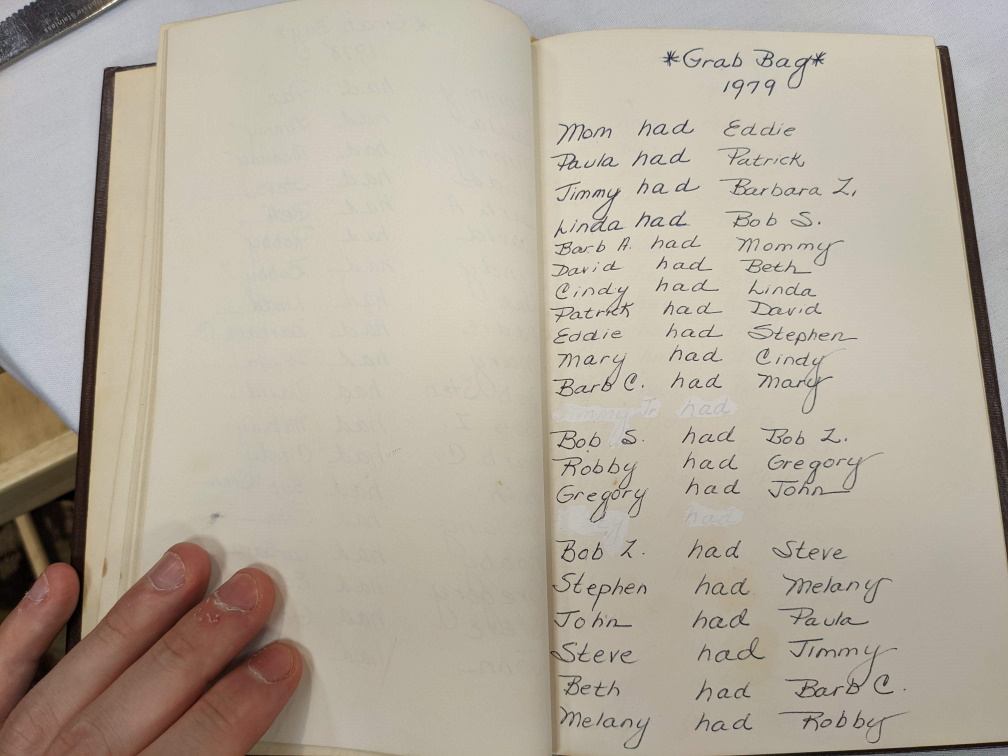 *Grab Bag*
1979
Mom had Eddie
Paula had Patrick
Jimmy had Barbara Z.
Linda had Bob S.
Barb A. had Mommy
David had Beth
Cindy had Linda
Patrick had David
Eddie had Stephen
Mary had Cindy
Barb C. had Mary
Jimmy Jr. had
Bob S. had Bob Z.
Robby had Gregory
Gregory had John
had
Bob Z. had Steve
Stephen had Melany
John had Paula
Steve had Jimmy
Beth had Barb C.
Melany had Robby